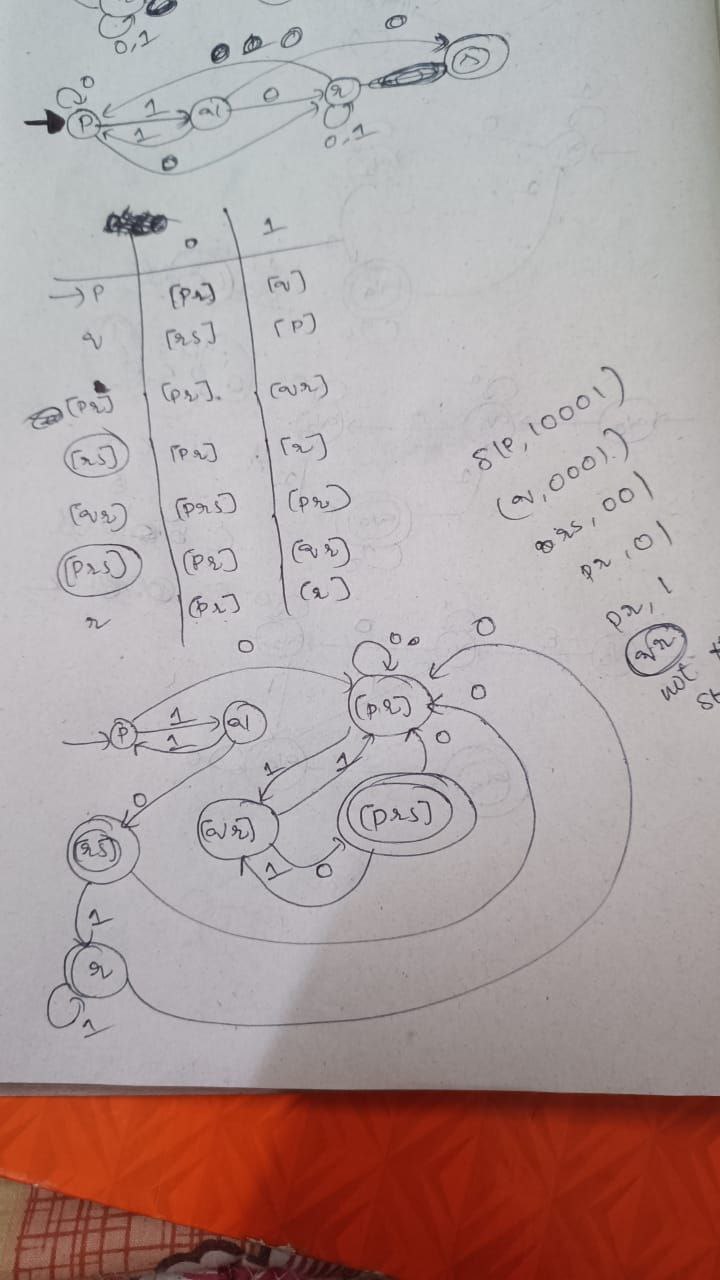 0,1
0
0
0
P 1 q 0 r s
1
0,1
0
0 1
→P [Pr] [q]
q [rs] [P]
[Pr] [Pr]. [qr]
[rs] [Pr] [r]
[qr] [Prs] [Pr]
[Prs] [Pr] [qr]
r [Pr] [r]
δ(P, 10001)
(q, 0001)
rs, 001
Pr, 01
Pr, 1
qr
not
0
0
0
P 1 q [P,r] 0
1 0
0 1 1
[rs] [qr] [Prs]
1 0
1
r
1